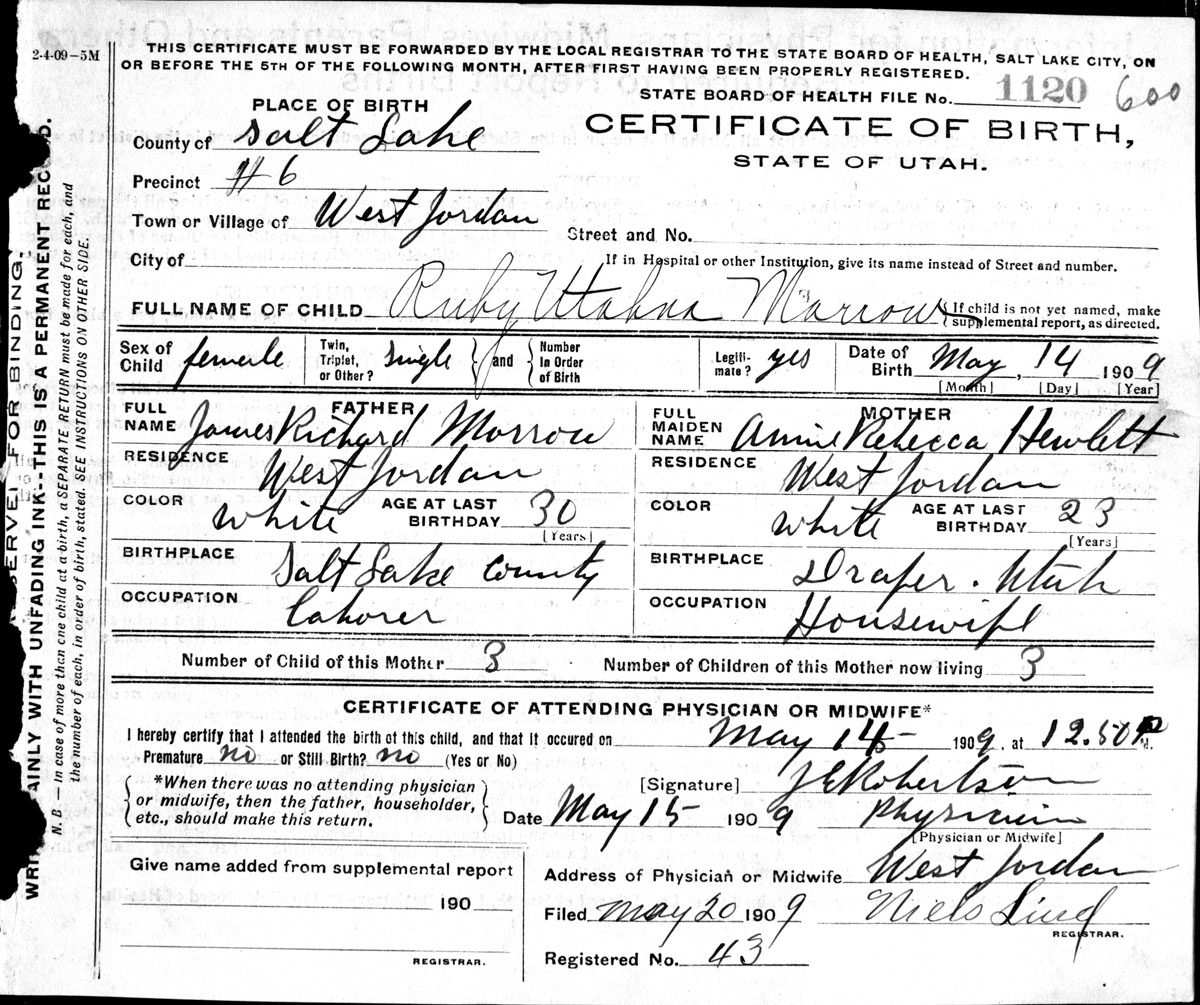 2-4-09—5M
THIS CERTIFICATE MUST BE FORWARDED BY THE LOCAL REGISTRAR TO THE STATE BOARD OF HEALTH, SALT LAKE CITY, ON
OR BEFORE THE 5TH OF THE FOLLOWING MONTH, AFTER FIRST HAVING BEEN PROPERLY REGISTERED.
STATE BOARD OF HEALTH FILE No. 1120 600
PLACE OF BIRTH
CERTIFICATE OF BIRTH,
STATE OF UTAH.
County of Salt Lake
Precinct #6
Town or Village of West Jordan
Street and No.
City of
If in Hospital or other Institution, give its name instead of Street and number.
FULL NAME OF CHILD Ruby Utahna Marrow
{If child is not yet named, make
supplemental report, as directed.
Sex of Child female
Twin, Triplet, or Other? Single } and { Number In Order of Birth
Legitimate? yes
Date of Birth May, 14 1909
[Month] [Day] [Year]
FATHER
FULL NAME James Richard Morrow
RESIDENCE West Jordan
COLOR white AGE AT LAST BIRTHDAY 30
[Years]
BIRTHPLACE Salt Lake County
OCCUPATION Laborer
MOTHER
FULL MAIDEN NAME Annie Rebecca Hewlett
RESIDENCE West Jordan
COLOR white AGE AT LAST BIRTHDAY 23
[Years]
BIRTHPLACE Draper. Utah
OCCUPATION Housewife
Number of Child of this Mother 3 Number of Children of this Mother now living 3
CERTIFICATE OF ATTENDING PHYSICIAN OR MIDWIFE*
I hereby certify that I attended the birth of this child, and that it occured on May 14 1909, at 12.50 P M.
Premature no or Still Birth? no (Yes or No)
*When there was no attending physician
or midwife, then the father, householder,
etc., should make this return.
[Signature] J E Robertson
Date May 15 1909 Physician
[Physician or Midwife]
Give name added from supplemental report
190
REGISTRAR.
Address of Physician or Midwife West Jordan
Filed May 20 1909 Niels Lind
REGISTRAR.
Registered No. 43
SERVED FOR BINDING.
WRITE PLAINLY WITH UNFADING INK--THIS IS A PERMANENT RECORD.
N. B.—In case of more than one child at a birth, a SEPARATE RETURN must be made for each, and
the number of each, in order of birth, stated. SEE INSTRUCTIONS ON OTHER SIDE.